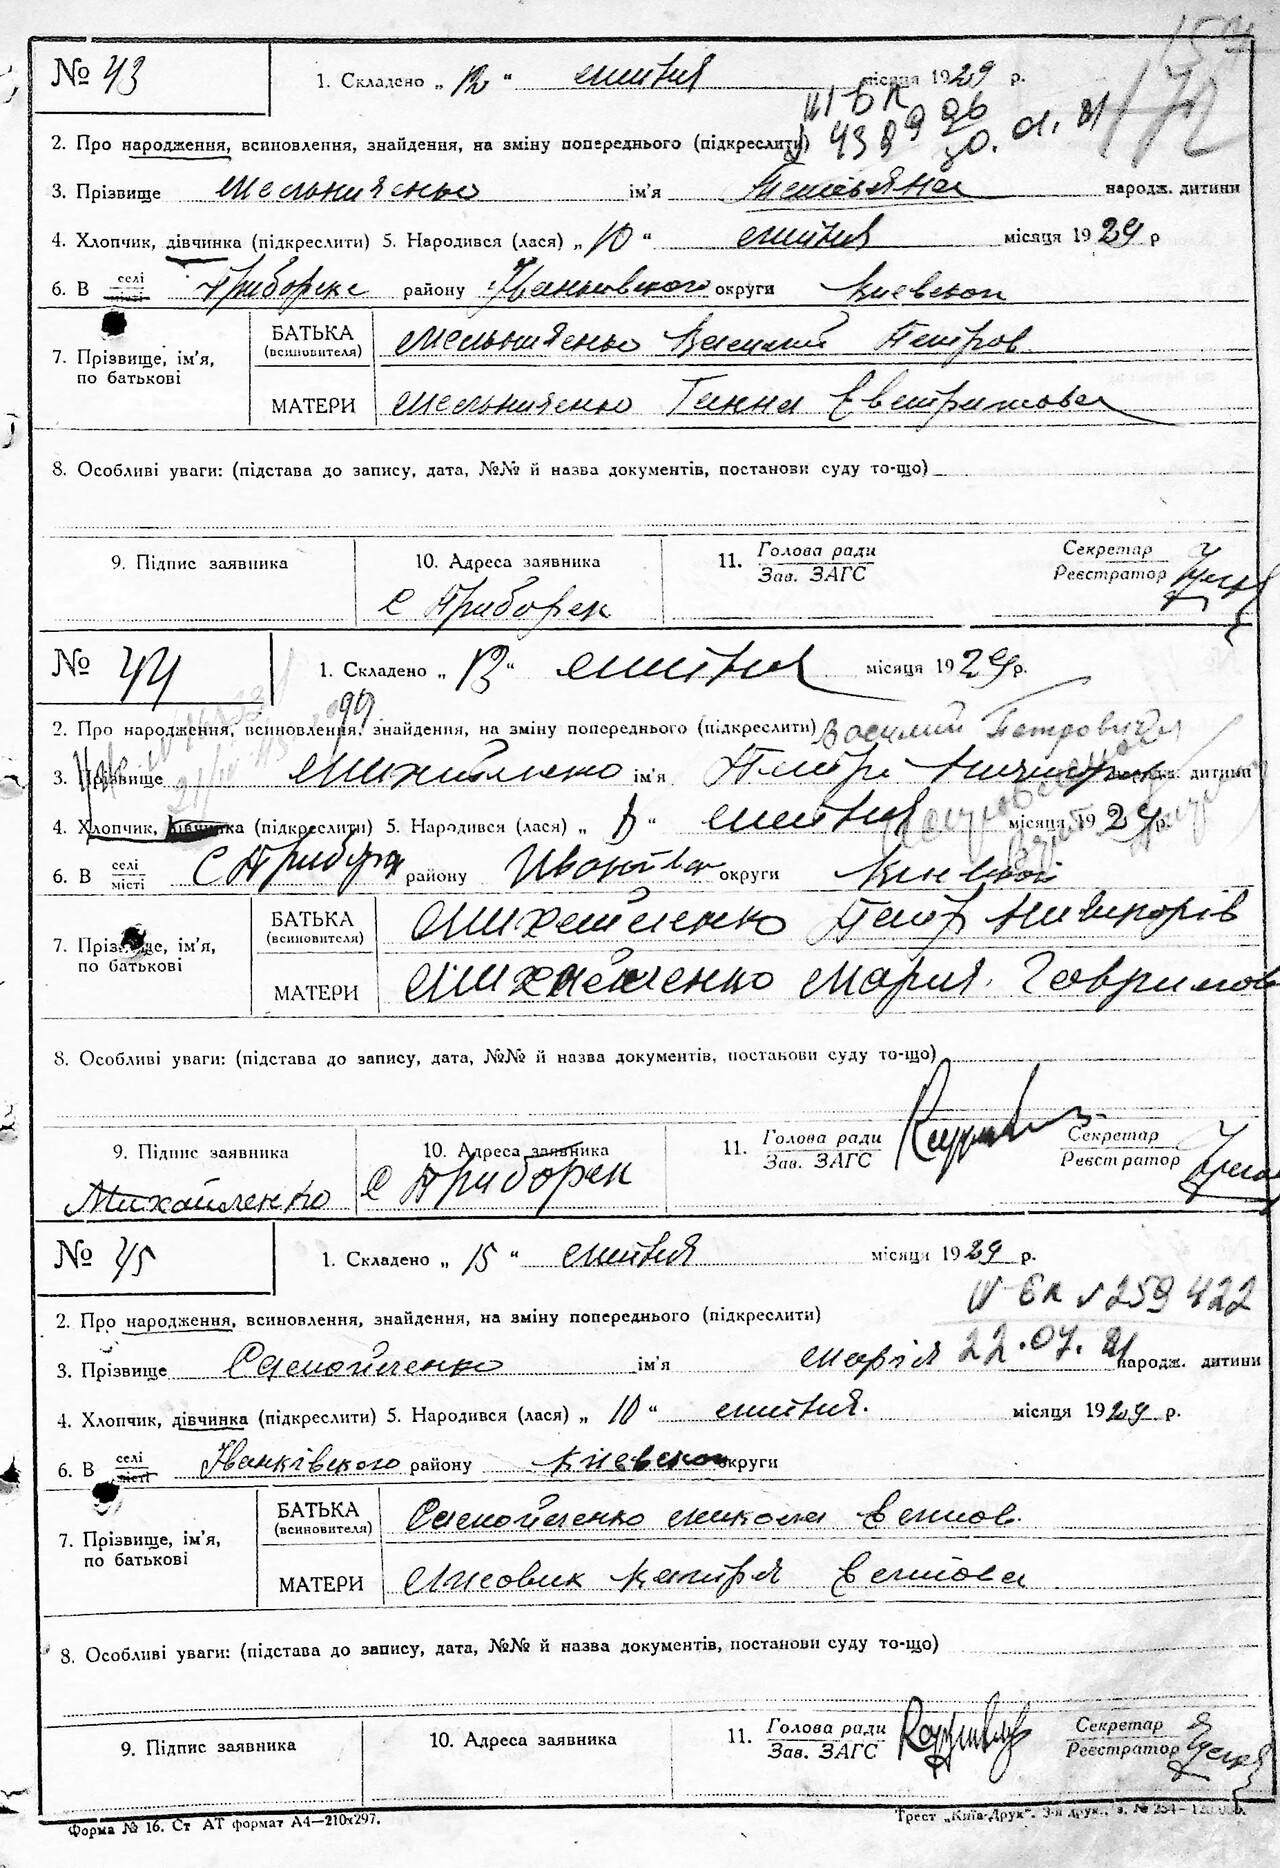 № 43
1. Складено „ 12 “ липня місяця 1929 р.
2. Про народження, всиновлення, знайдення, на зміну попереднього (підкреслити)
3. Прізвище Мельниченко ім'я Тетьяна народж. дитини
4. Хлопчик, дівчинка (підкреслити) 5. Народився (лася) „ 10 “ липня місяця 1929 р
6. В селі місті Приборске району Іваньковского округи Киевской
7. Прізвище, ім'я, по батькові
БАТЬКА (всиновителя) Мельниченко Василий Петров
МАТЕРИ Мельниченко Ганна
8. Особливі уваги: (підстава до запису, дата, №№ й назва документів, постанови суду то-що)
9. Підпис заявника
10. Адреса заявника
с Приборск
11. Голова ради
Зав. ЗАГС
Секретар
Реєстратор
№ 44
1. Складено „ 13 “ липня місяця 1929 р.
2. Про народження, всиновлення, знайдення, на зміну попереднього (підкреслити) Василий Петрович
3. Прізвище Михайленко ім'я Петро народж. дитини
4. Хлопчик, дівчинка (підкреслити) 5. Народився (лася) „ “ липня місяця 1929 р.
6. В селі місті С Приборск району округи
7. Прізвище, ім'я, по батькові
БАТЬКА (всиновителя) Михайленко Петр Ничипорів
МАТЕРИ Михайленко Мария Гаврилов
8. Особливі уваги: (підстава до запису, дата, №№ й назва документів, постанови суду то-що)
9. Підпис заявника
Михайленко
10. Адреса заявника
С Приборск
11. Голова ради
Зав. ЗАГС
Секретар
Реєстратор
№ 45
1. Складено „ 15 “ липня місяця 1929 р.
2. Про народження, всиновлення, знайдення, на зміну попереднього (підкреслити)
259422
3. Прізвище Самойленко ім'я Марія 22.07. народж. дитини
4. Хлопчик, дівчинка (підкреслити) 5. Народився (лася) „ 10 “ липня. місяця 1929 р.
6. В селі місті Іванківского району Киевской округи
7. Прізвище, ім'я, по батькові
БАТЬКА (всиновителя) Самойленко Микола
МАТЕРИ Лисовик
8. Особливі уваги: (підстава до запису, дата, №№ й назва документів, постанови суду то-що)
9. Підпис заявника
10. Адреса заявника
11. Голова ради
Зав. ЗАГС
Секретар
Реєстратор
Форма № 16. Ст АТ формат А4—210х297.
Трест „Київ-Друк“. 3-я друк., з. № 254—120.000.